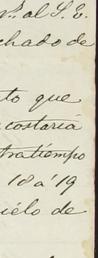 al S. E.
chado de
to que
costaría
tratiempo
18 á 19
iélo de